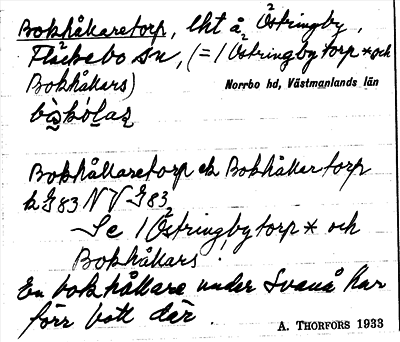 Bokhållaretorp, lht å Östringby,
Fläckebo sn, (= 1 Östringbytorp * och
Bokhållars) Norrbo hd, Västmanlands län
Bokhållaretorp ek Bokhållartorp
k G83 NV G83
Se 1 Östringbytorp * och
Bokhållars.
En bokhållare under Svanå har
förr bott där.
A. THORFORS 1933